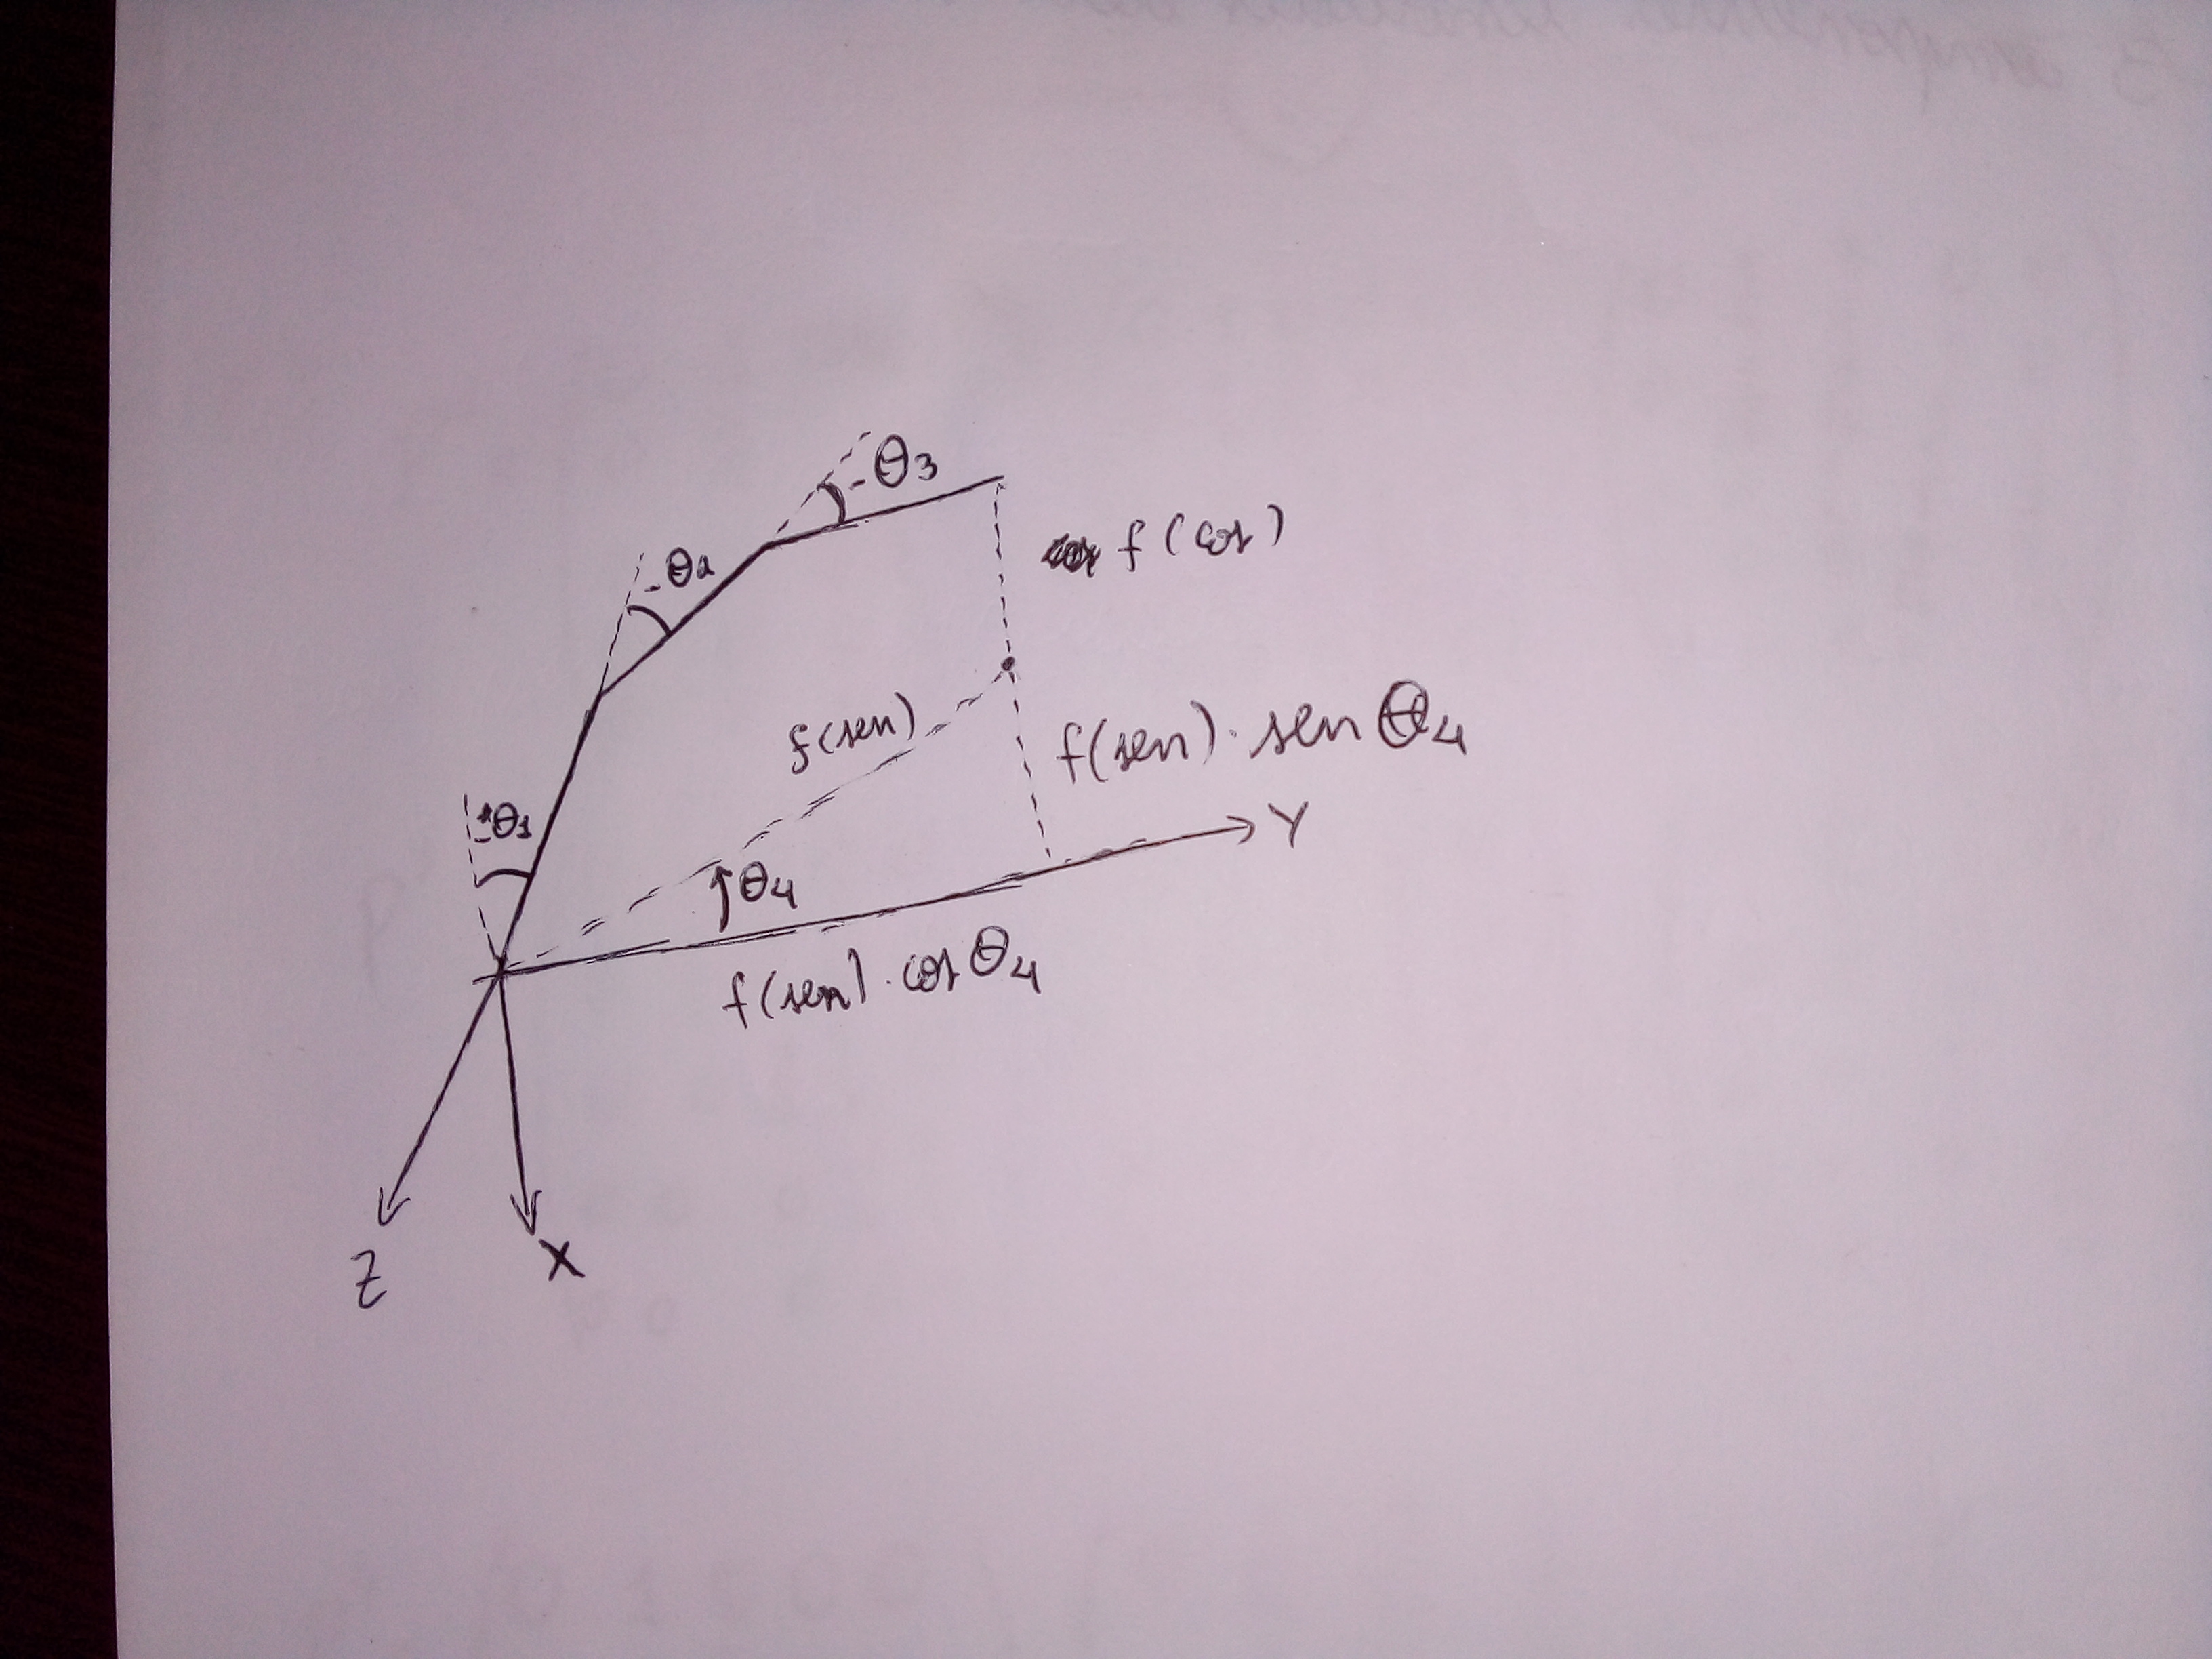 -θ3
f(cos)
-θ2
f(sen)
f(sen). sen θ4
-θ1
Y
θ4
f(sen). cos θ4
Z
X